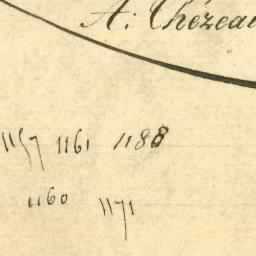 A. Chézeau
1157 1161 1188
1160 1171